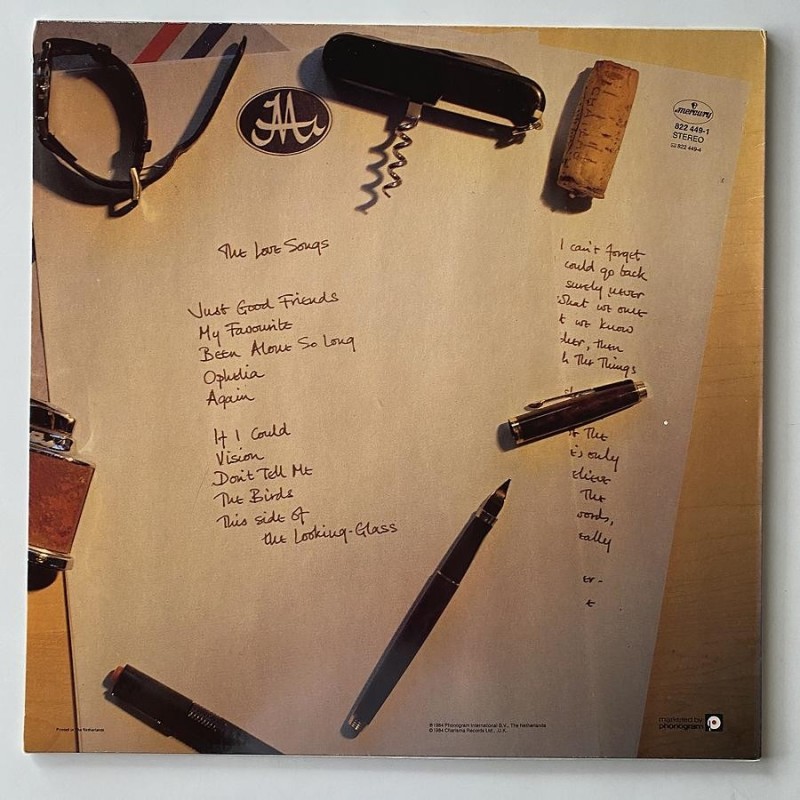 mercury
822 449-1
STEREO
822 449-4
The Love Songs
Just Good Friends
My Favourite
Been Alone So Long
Ophelia
Again
If I Could
Vision
Don't Tell Me
The Birds
This side of
the Looking-Glass
I can't forget
could go back
surely never
what we once
t we know
then
h The Things
The
is only
elieve
The
words,
eally
er-
t
Printed in The Netherlands
℗ 1984 Phonogram International B.V., The Netherlands
© 1984 Charisma Records Ltd., U.K.
marketed by
phonogram